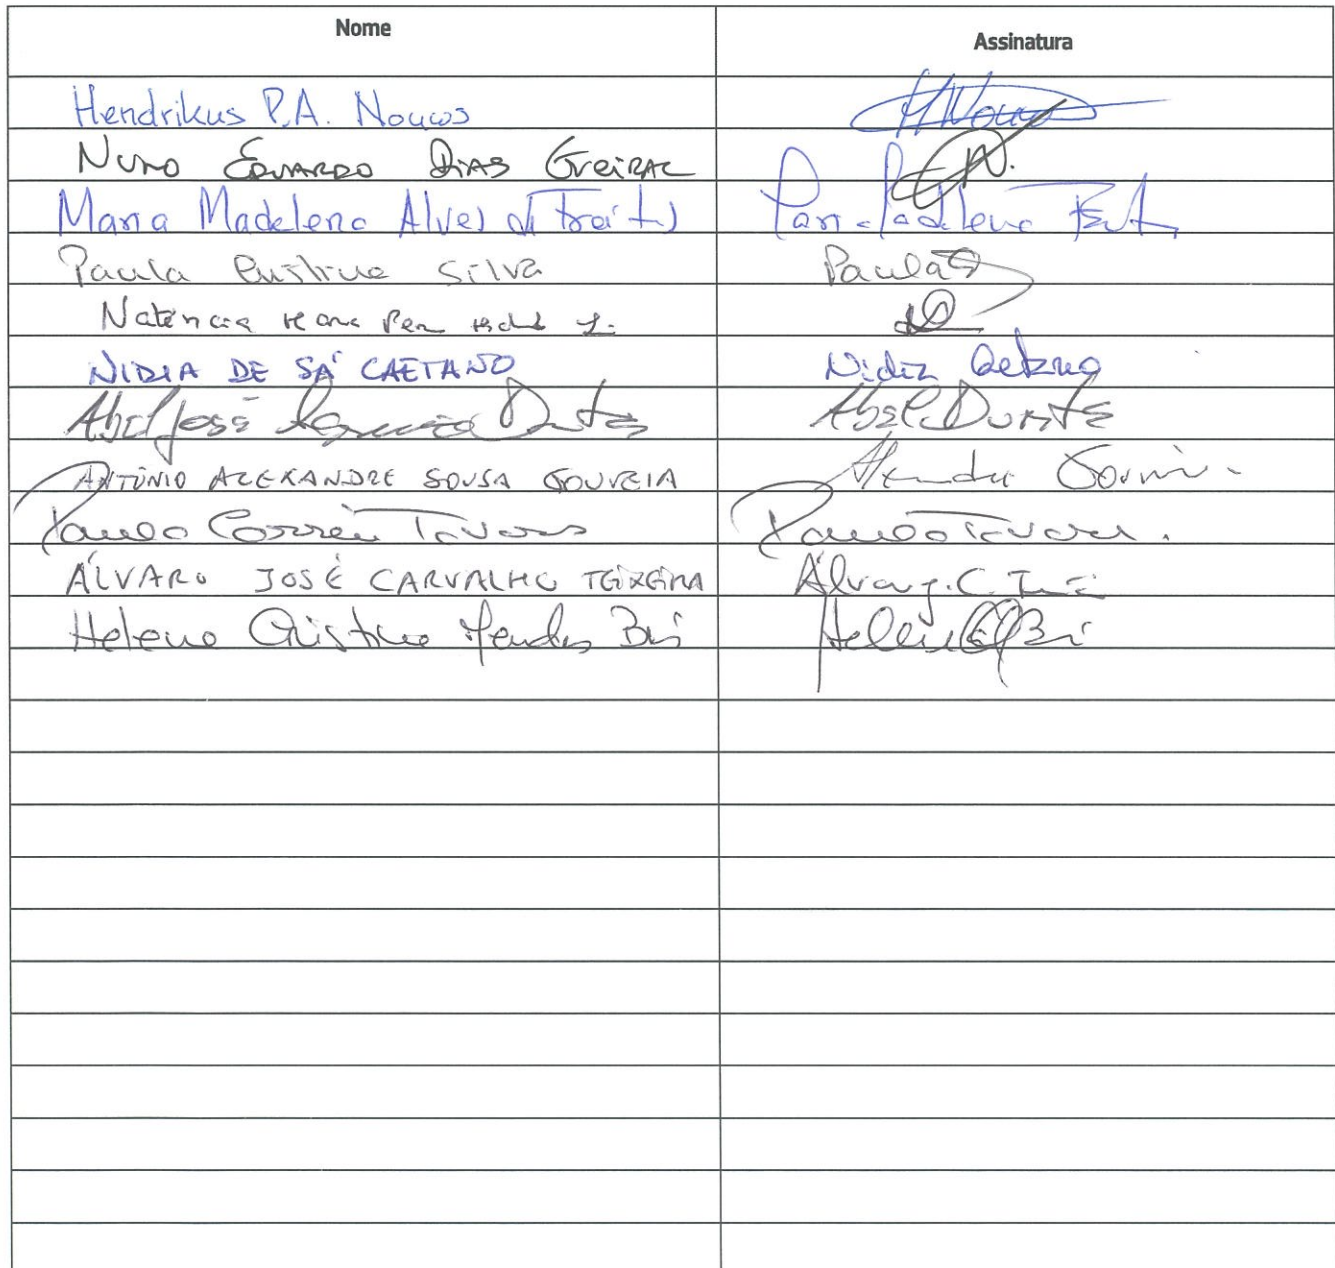 Nome Assinatura
Hendrikus P.A. Nouws HNouws
NUNO EDUARDO DIAS N.
Maria Madalena Alves de Freitas
Paula Cristina Silva Paula
NIDIA DE SÁ CAETANO Nidia Caetano
Abel José Duarte Abel Duarte
ANTÓNIO ALEXANDRE SOUSA GOUVEIA Alexandre Gouveia
Paulo Correia Tavares Paulo Tavares.
ÁLVARO JOSÉ CARVALHO TEIXEIRA Álvaro J. C.
Helena Cristina Mendes